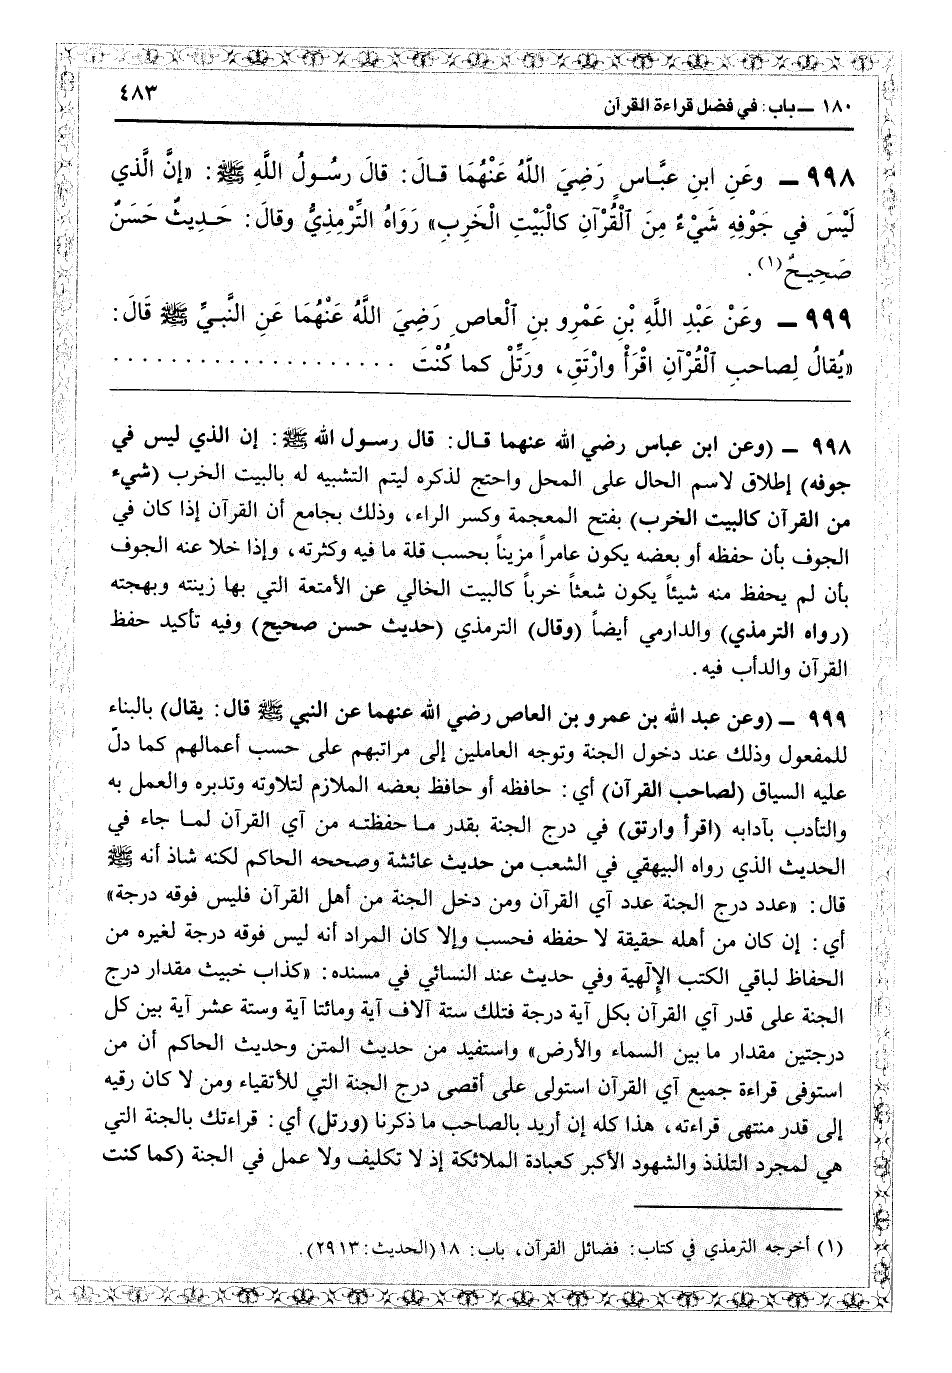 ١٨٠ ــ باب: في فضل قراءة القرآن
٤٨٣
٩٩٨ ــ وعَنِ ابنِ عبَّـاسٍ رَضِيَ اللَّهُ عَنْهُمَا قـالَ: قالَ رسُـولُ اللَّهِ ﷺ: «إنَّ الَّذي
لَيْسَ في جَوْفِهِ شَيْءٌ مِنَ ٱلْقُرْآنِ كالبَيْتِ الْخَرِبِ» رَوَاهُ التِّرْمِذِيُّ وقالَ: حَـدِيثٌ حَسَنٌ
صَحِيـحٌ(١).
٩٩٩ ــ وعَنْ عَبْدِ اللَّهِ بْنِ عَمْرِو بنِ ٱلْعاصِ رَضِيَ اللَّهُ عَنْهُمَا عَنِ النَّبـيِّ ﷺ قَالَ:
«يُقالُ لِصاحبِ ٱلْقُرْآنِ اقْرَأْ وارْتَقِ، ورَتِّلْ كما كُنْتَ . . . . . . . . . . . . . . . . . . . .
٩٩٨ ــ (وعن ابن عباس رضي الله عنهما قـال: قال رسـول الله ﷺ: إن الذي ليس في
جوفه) إطلاق لاسم الحال على المحل واحتج لذكره ليتم التشبيه له بالبيت الخرب (شيء
من القرآن كالبيت الخرب) بفتح المعجمة وكسر الراء، وذلك بجامع أن القرآن إذا كان في
الجوف بأن حفظه أو بعضه يكون عامراً مزيناً بحسب قلة ما فيه وكثرته، وإذا خلا عنه الجوف
بأن لم يحفظ منه شيئاً يكون شعثاً خرباً كالبيت الخالي عن الأمتعة التي بها زينته وبهجته
(رواه الترمذي) والدارمي أيضاً (وقال) الترمذي (حديث حسن صحيح) وفيه تأكيد حفظ
القرآن والدأب فيه.
٩٩٩ ــ (وعن عبد الله بن عمرو بن العاص رضي الله عنهما عن النبي ﷺ قال: يقال) بالبناء
للمفعول وذلك عند دخول الجنة وتوجه العاملين إلى مراتبهم على حسب أعمالهم كما دلّ
عليه السياق (لصاحب القرآن) أي: حافظه أو حافظ بعضه الملازم لتلاوته وتدبره والعمل به
والتأدب بآدابه (اقرأ وارتق) في درج الجنة بقدر مـا حفظتـه من آي القرآن لمـا جاء في
الحديث الذي رواه البيهقي في الشعب من حديث عائشة وصححه الحاكم لكنه شاذ أنه ﷺ
قال: «عدد درج الجنة عدد آي القرآن ومن دخل الجنة من أهل القرآن فليس فوقه درجة»
أي: إن كان من أهله حقيقة لا حفظه فحسب وإلا كان المراد أنه ليس فوقه درجة لغيره من
الحفاظ لباقي الكتب الإلٓهية وفي حديث عند النسائي في مسنده: «كذاب خبيث مقدار درج
الجنة على قدر آي القرآن بكل آية درجة فتلك ستة آلاف آية ومائتا آية وستة عشر آية بين كل
درجتين مقدار ما بين السماء والأرض» واستفيد من حديث المتن وحديث الحاكم أن من
استوفى قراءة جميع آي القرآن استولى على أقصى درج الجنة التي للأتقياء ومن لا كان رقيه
إلى قدر منتهى قراءته، هذا كله إن أريد بالصاحب ما ذكرنا (ورتل) أي: قراءتك بالجنة التي
هي لمجرد التلذذ والشهود الأكبر كعبادة الملائكة إذ لا تكليف ولا عمل في الجنة (كما كنت
(١) أخرجه الترمذي في كتاب: فضائل القرآن، باب: ١٨ (الحديث: ٢٩١٣).